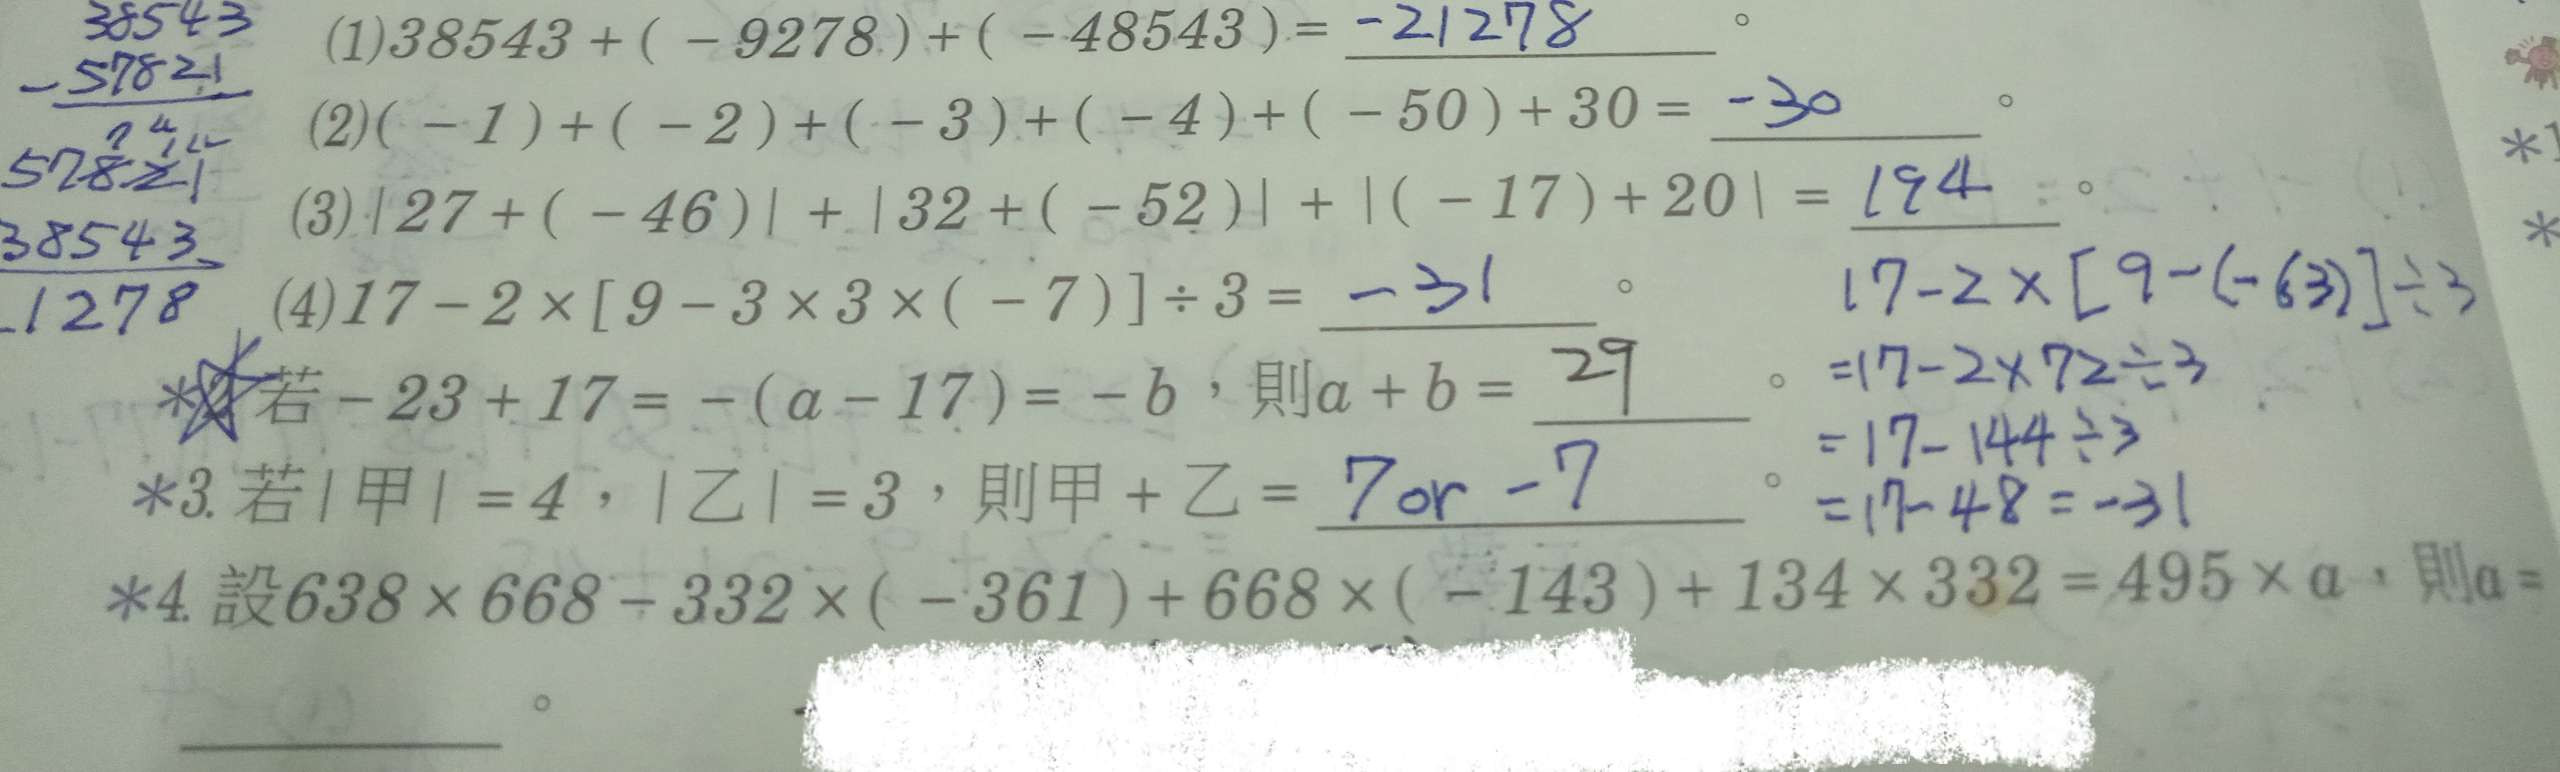 38543
(1)38543+(-9278)+(-48543)= -21278。
-57821
(2)(-1)+(-2)+(-3)+(-4)+(-50)+30= -30。
57821
(3)|27+(-46)|+|32+(-52)|+|(-17)+20|= 194。
38543
17-2×[9-(-63)]÷3
(4)17-2×[9-3×3×(-7)]÷3= -31。
1278
=17-2×72÷3
*2.若-23+17=-(a-17)=-b,則a+b= 29。
=17-144÷3
*3.若|甲|=4,|乙|=3,則甲+乙= 7 or -7。
=17-48=-31
*4.設638×668-332×(-361)+668×(-143)+134×332=495×a,則a=
。
*1
*